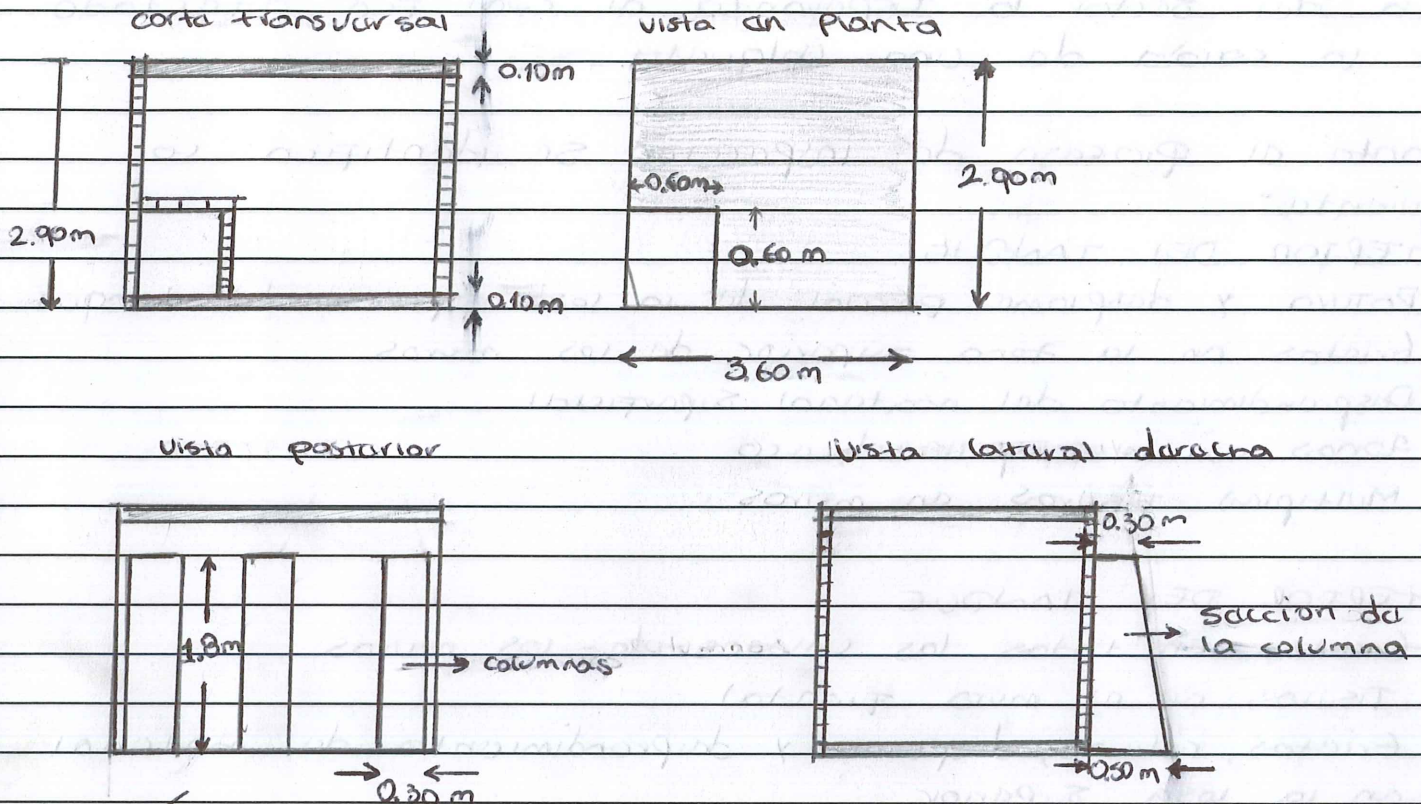 corte transversal
0.10m
2.90m
0.10m
vista en Planta
0.60m
2.90m
0.60 m
3.60 m
vista posterior
1.8m
columnas
0.30 m
vista lateral derecha
0.30 m
seccion de
la columna
0.50 m